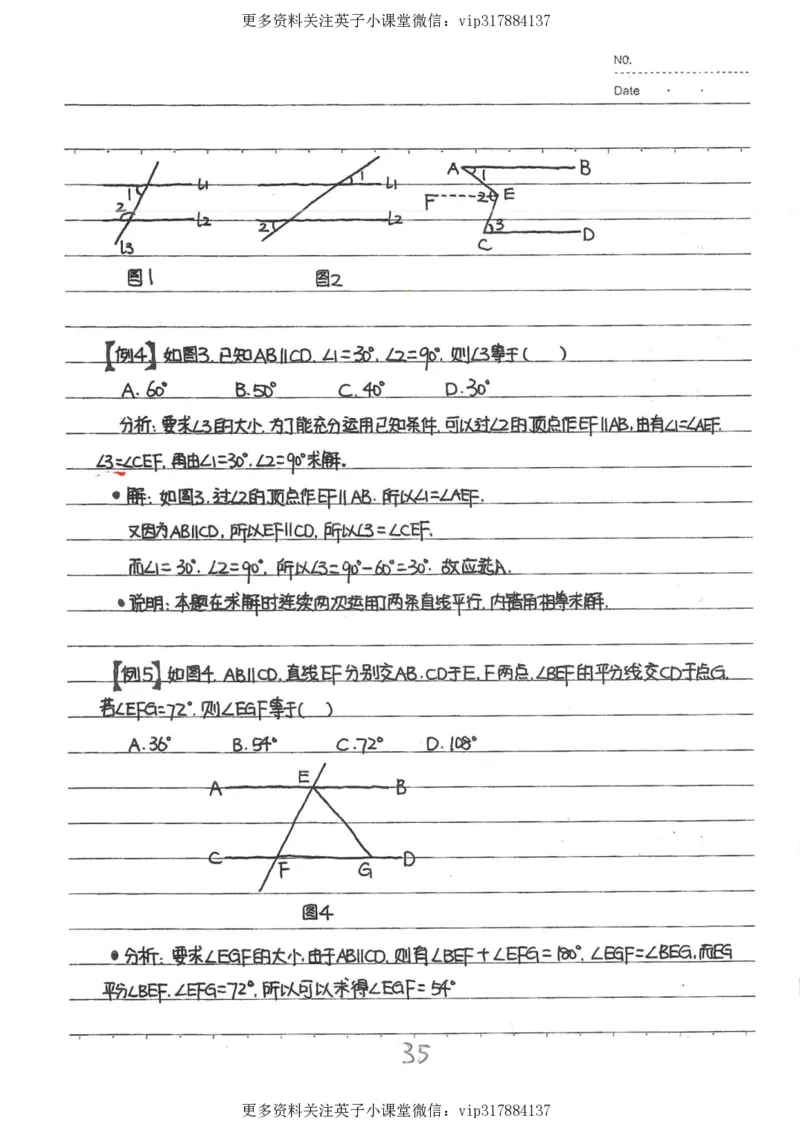 更多资料关注英子小课堂微信：vip317884137
NO.
Date
1 L1
2 L2
L3
1 L1
2 L2
A 1 B
F 2 E
3
C D
图1 图2
【例4】如图3，已知AB∥CD，∠1=30°，∠2=90°，则∠3等于（ ）
A.60° B.50° C.40° D.30°
分析：要求∠3的大小，为了能充分运用已知条件，可以过∠2的顶点作EF∥AB，由有∠1=∠AEF，
∠3=∠CEF，再由∠1=30°，∠2=90°求解。
•解：如图3，过∠2的顶点作EF∥AB．所以∠1=∠AEF．
又因为AB∥CD，所以EF∥CD，所以∠3=∠CEF，
而∠1=30°，∠2=90°，所以∠3=90°-60°=30°．故应选A．
•说明：本题在求解时连续两次运用了两条直线平行，内错角相等求解．
【例5】如图4，AB∥CD，直线EF分别交AB．CD于E，F两点，∠BEF的平分线交CD于点G，
若∠EFG=72°，则∠EGF等于（ ）
A.36° B.54° C.72° D.108°
A E B
C F G D
图4
•分析：要求∠EGF的大小，由于AB∥CD，则有∠BEF+∠EFG=180°，∠EGF=∠BEG，而EG
平分∠BEF，∠EFG=72°，所以可以求得∠EGF=54°
35
更多资料关注英子小课堂微信：vip317884137